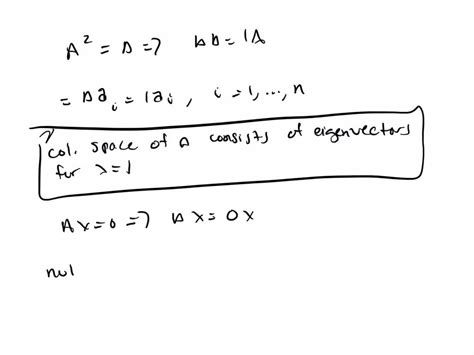 A² = A => AA = 1A
= Aa_i = 1a_i, i = 1, ..., n
col. space of A consists of eigenvectors
for λ = 1
Ax = 0 => Ax = 0x
nul